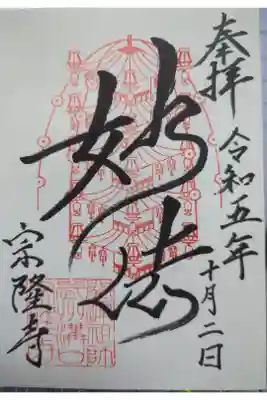 奉拝 令和五年
十月二日
妙法
宗隆寺